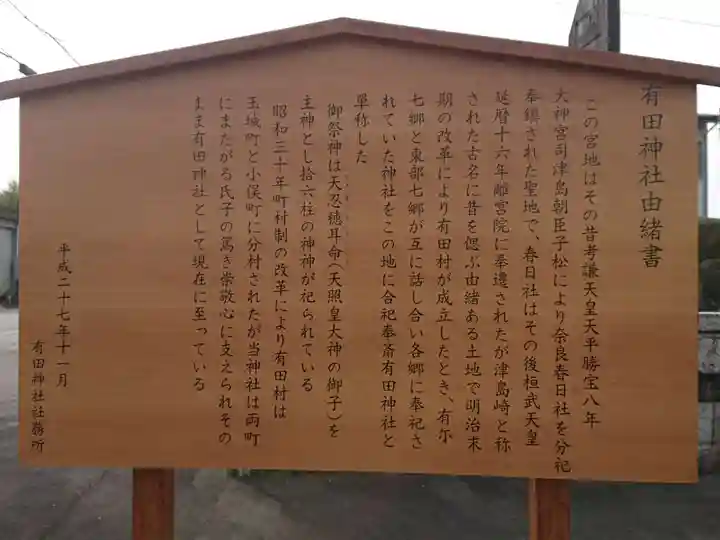 有田神社由緒書
この宮地はその昔考謙天皇天平勝宝八年
大神宮司津島朝臣子松により奈良春日社を分祀
奉鎮された聖地で、春日社はその後桓武天皇
延暦十六年離宮院に奉遷されたが津島崎と称
された古名に昔を偲ぶ由緒ある土地で明治末
期の改革により有田村が成立したとき、有尓
七郷と東部七郷が互に話し合い各郷に奉祀さ
れていた神社をこの地に合祀奉斎有田神社と
単称した
御祭神は天忍穂耳命(天照皇大神の御子)を
主神とし拾六柱の神神が祀られている
昭和三十年町村制の改革により有田村は
玉城町と小俣町に分村されたが当神社は両町
にまたがる氏子の篤き崇敬心に支えられその
まま有田神社として現在に至っている
平成二十七年十一月
有田神社社務所